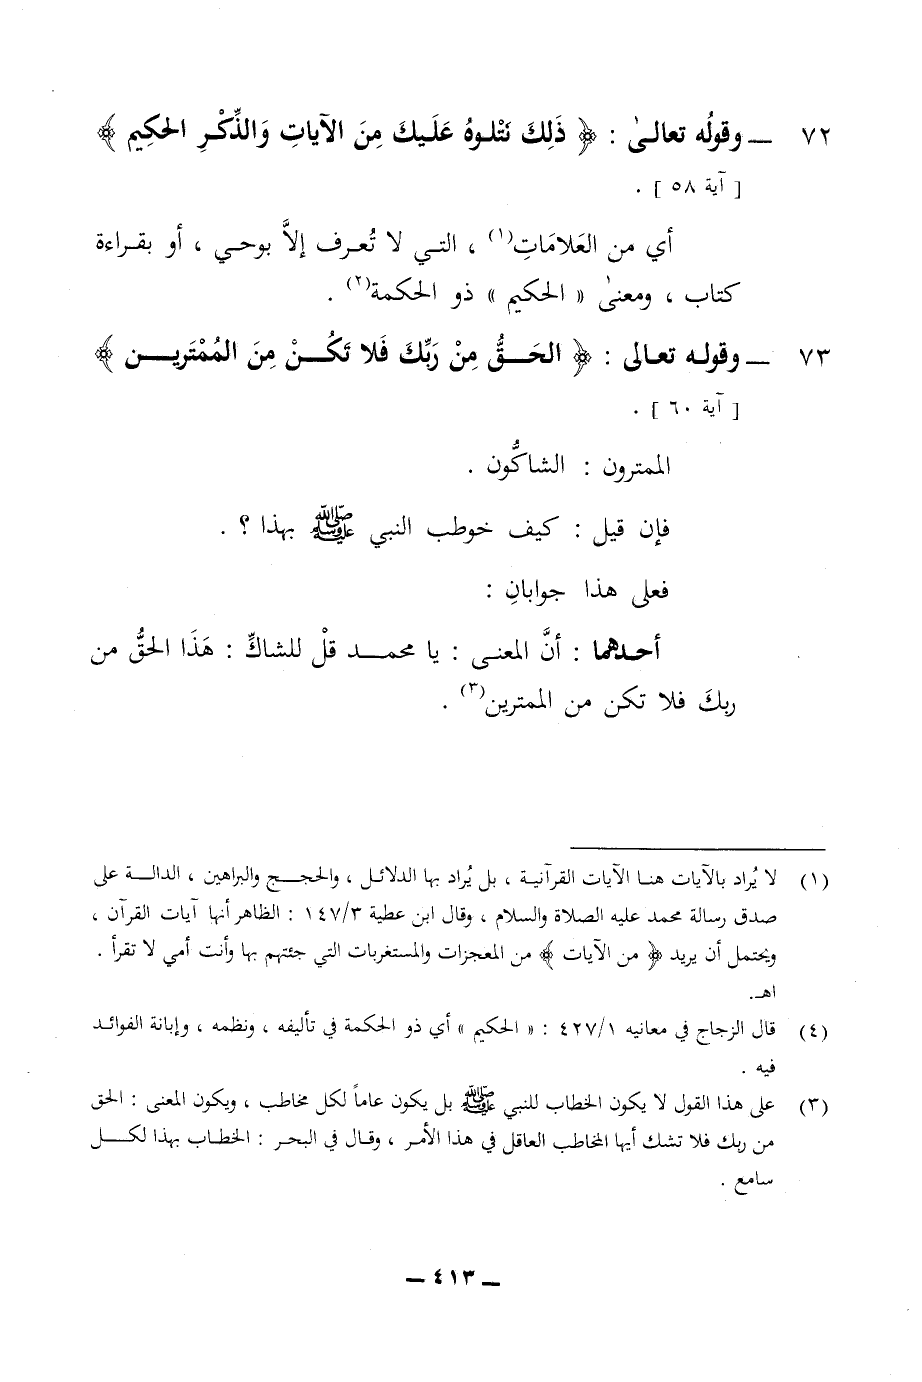 ٧٢ ــ وقولُه تعالىٰ : ﴿ ذَلِكَ نَتْلوهُ عَلَيكَ مِنَ الآياتِ وَالذِّكْرِ الحَكِيم ﴾
[ آية ٥٨ ] .
أي من العَلامَاتِ(١) ، التـي لا تُعـرف إلاَّ بوحـي ، أو بقـراءة
كتاب ، ومعنىٰ « الحكيم » ذو الحكمة(٢) .
٧٣ ــ وقولـه تعـالى : ﴿ الحَــقُّ مِنْ رَبِّكَ فَلا تَكُــنْ مِنَ المُمْتَريــن ﴾
[ آية ٦٠ ] .
الممترون : الشاكُّون .
فإن قيل : كيف خوطب النبي ﷺ بهذا ؟ .
فعلى هذا جوابانِ :
أحـدهما : أنَّ المعنـى : يا محمــد قلْ للشاكِّ : هَذَا الحقُّ من
ربكَ فلا تكن من الممترين(٣) .
(١) لا يُراد بالآيات هنـا الآيات القرآنيـة ، بل يُراد بها الدلائـل ، والحجــج والبراهين ، الدالــة على
صدق رسالة محمد عليه الصلاة والسلام ، وقال ابن عطية ١٤٧/٣ : الظاهر أنها آيات القرآن ،
ويحتمل أن يريد ﴿ من الآيات ﴾ من المعجزات والمستغربات التي جئتهم بها وأنت أمي لا تقرأ .
اهـ.
(٤) قال الزجاج في معانيه ٤٢٧/١ : « الحكيم » أي ذو الحكمة في تأليفه ، ونظمه ، وإبانة الفوائـد
فيه .
(٣) على هذا القول لا يكون الخطاب للنبي ﷺ بل يكون عاماً لكل مخاطب ، ويكون المعنى : الحق
من ربك فلا تشك أيها المخاطب العاقل في هذا الأمـر ، وقـال في البحر : الخطـاب بهذا لكـــل
سامع .
ــ ٤١٣ ــ